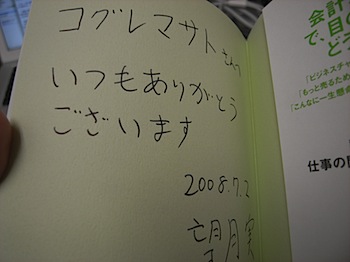 コグレマサトさんへ
いつもありがとう
ございます
2008.7.2
望月実
会計
で、目の
どう
「ビジネスチャ
「もっと売るため
「こんなに一生懸命
仕事の